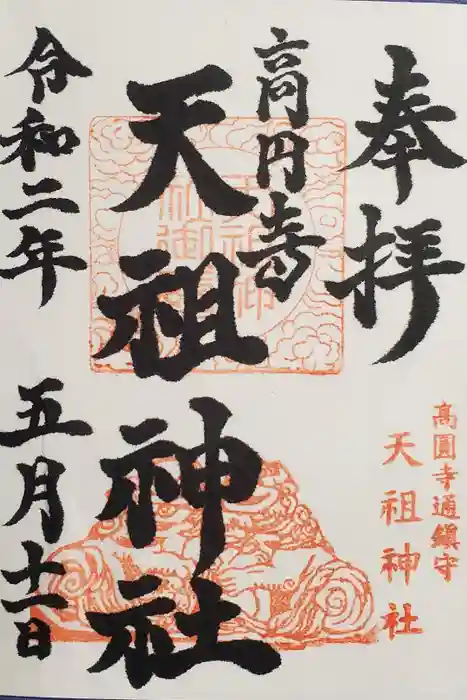 奉拝
高円寺
天祖神社
令和二年
五月十一日
高圓寺通鎮守
天祖神社